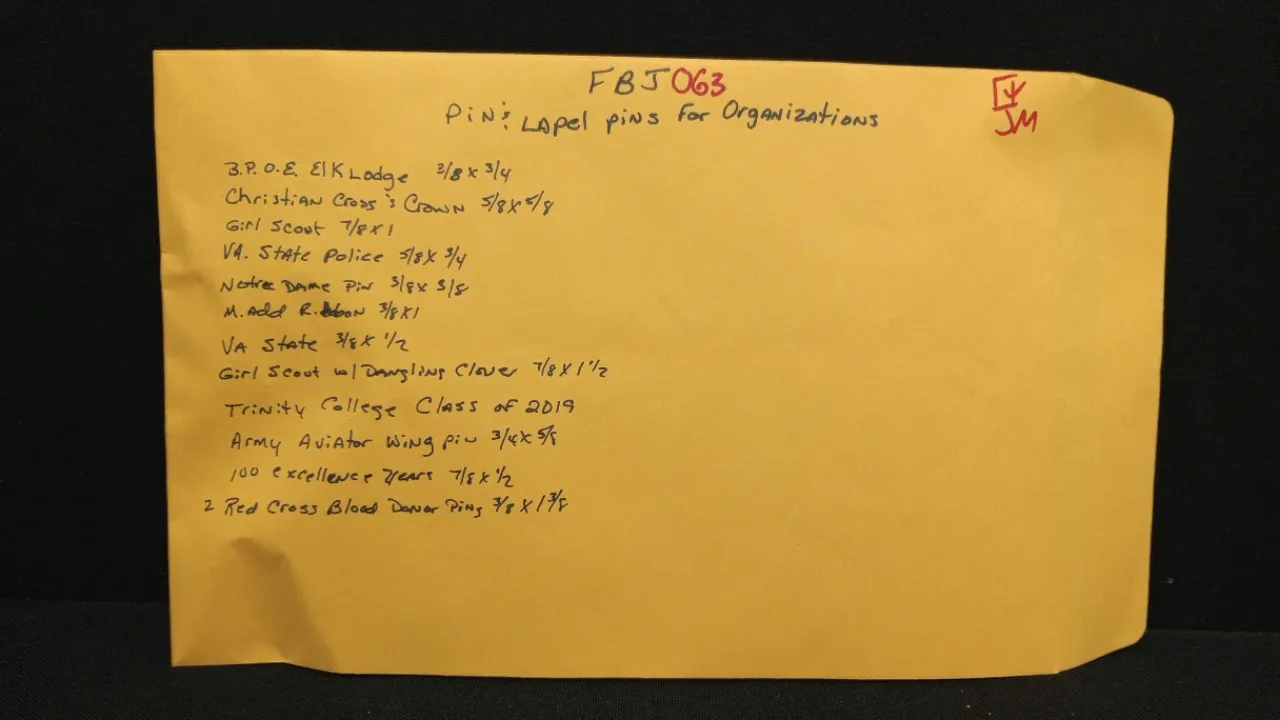 FBJ063
JM
Pin's Lapel pins for Organizations
B.P.O.E. Elk Lodge 3/8 x 3/4
Christian Cross's Crown 5/8 x 5/8
Girl Scout 7/8 x 1
VA. State Police 5/8 x 3/4
Notre Dame Pin 3/8 x 3/8
M.Add Ribbon 3/8 x 1
VA State 3/8 x 1/2
Girl Scout w/ Dangling Clover 7/8 x 1 1/2
Trinity College Class of 2019
Army Aviator Wing pin 3/4 x 5/8
100 excellence Years 7/8 x 1/2
2 Red Cross Blood Donor Pins 3/8 x 1 3/8